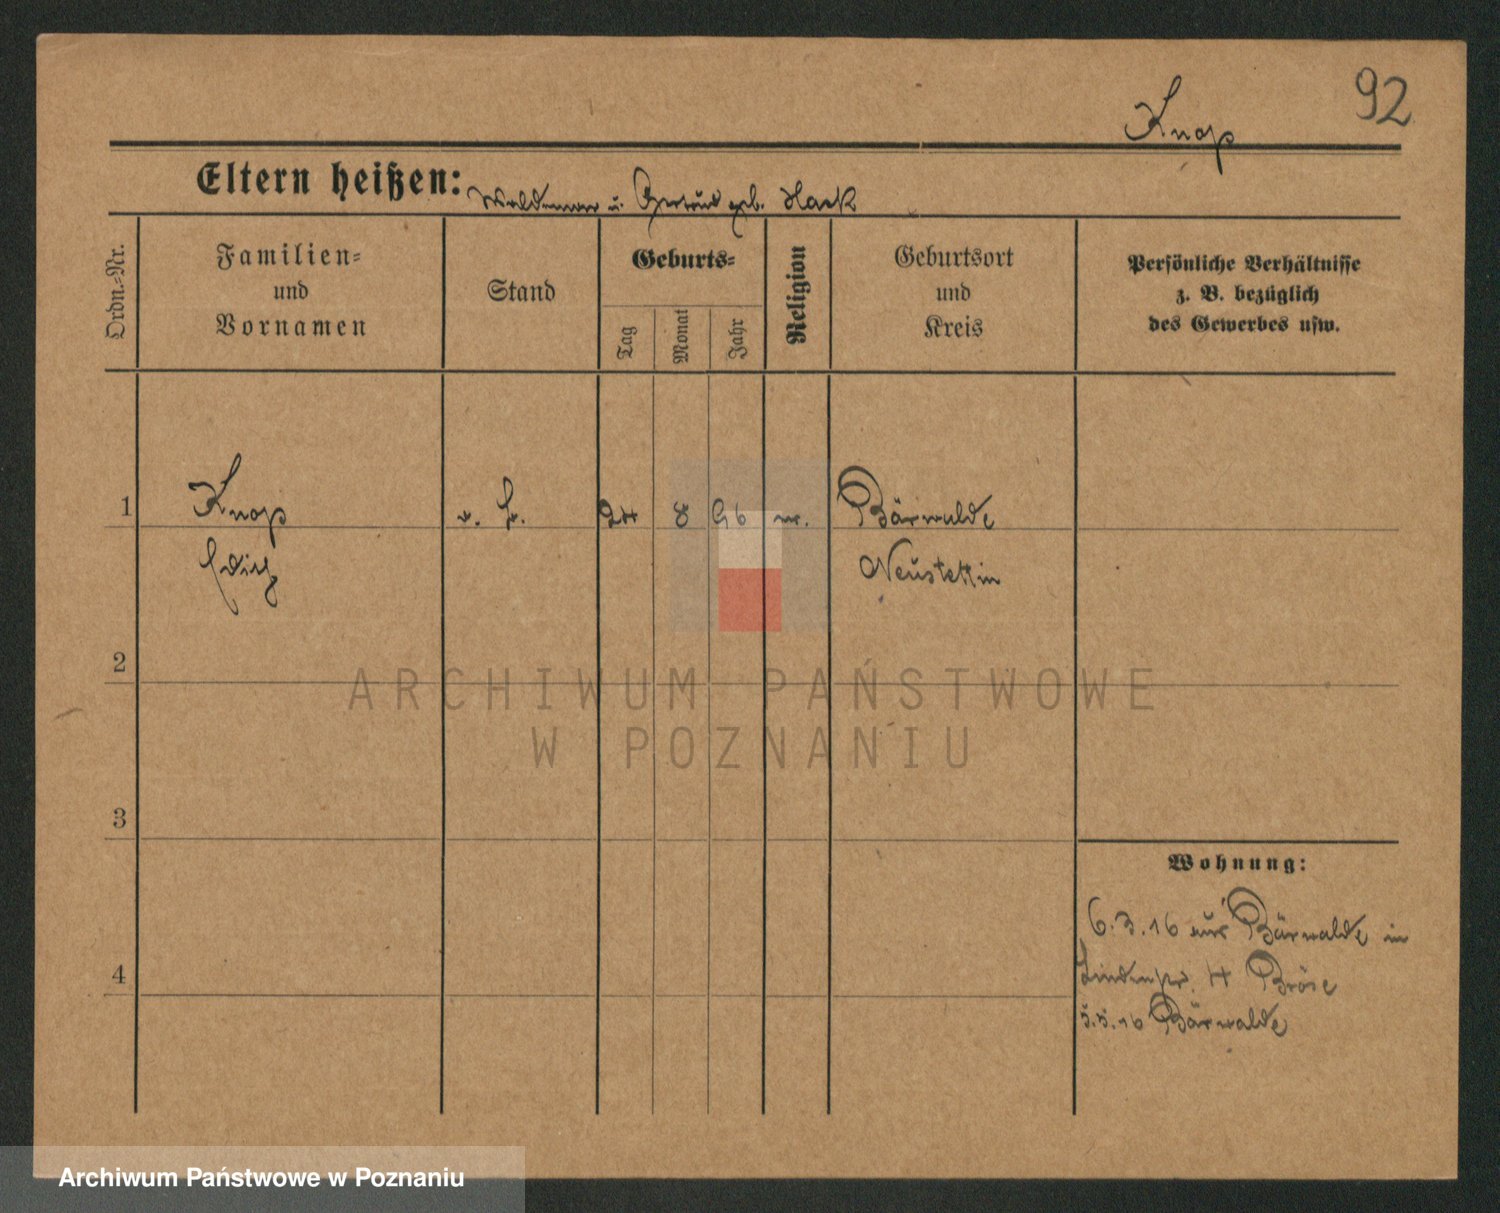 92
Knop
Eltern heißen: Waldemar u. Gertrud geb. Hack
Ordn.-Nr.
Familien-
und
Vornamen
Stand
Geburts-
Tag
Monat
Jahr
Religion
Geburtsort
und
Kreis
Persönliche Verhältnisse
z. B. bezüglich
des Gewerbes usw.
1 Knop 24 8 96 Bärwalde
Edith Neustettin
2
3
4
Wohnung:
6.3.16 aus Bärwalde in
Lindenstr. 4 Bröse
5.5.16 Bärwalde
ARCHIWUM PAŃSTWOWE
W POZNANIU
Archiwum Państwowe w Poznaniu